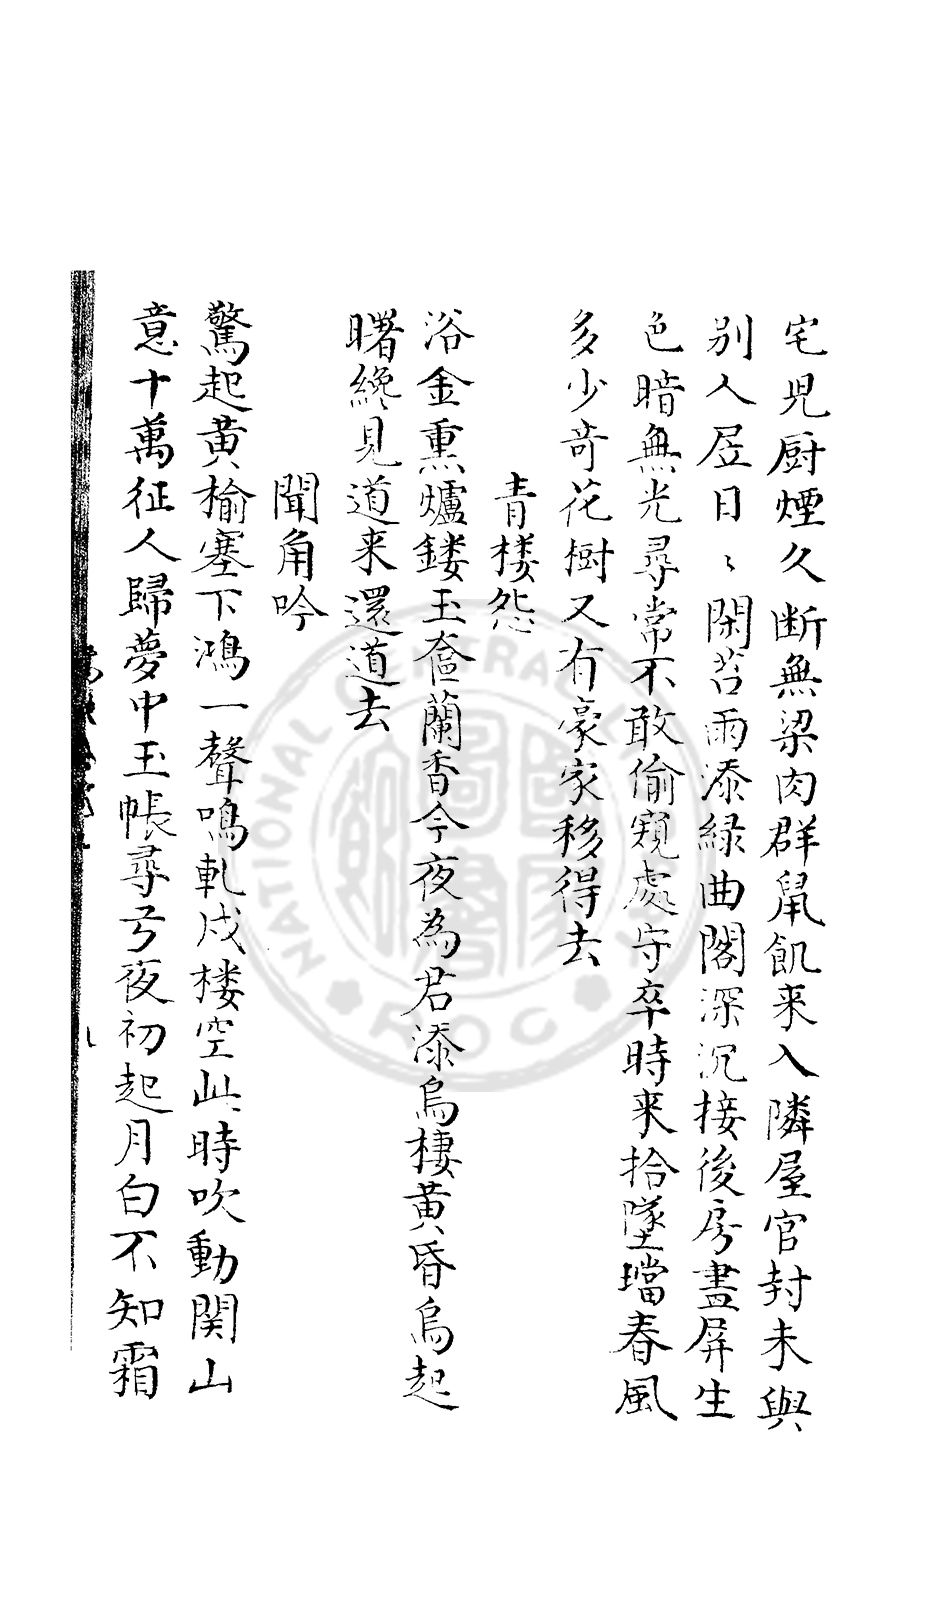 宅児厨煙久断無梁肉群鼠飢来入隣屋官封未與
別人居日〻閑苔雨添緑曲閣深沉接後房畫屏生
色暗無光尋常不敢偷窺處守卒時来拾墜璫春風
多少奇花樹又有豪家移得去
青楼怨
浴金熏爐鏤玉奩蘭香今夜為君添烏棲黄昏烏起
曙纔見道来還道去
聞角吟
驚起黄榆塞下鴻一聲鳴軋戍楼空此時吹動関山
意十萬征人歸夢中玉帳尋弓夜初起月白不知霜
九
NATIONAL CENTRAL LIBRARY
ROC